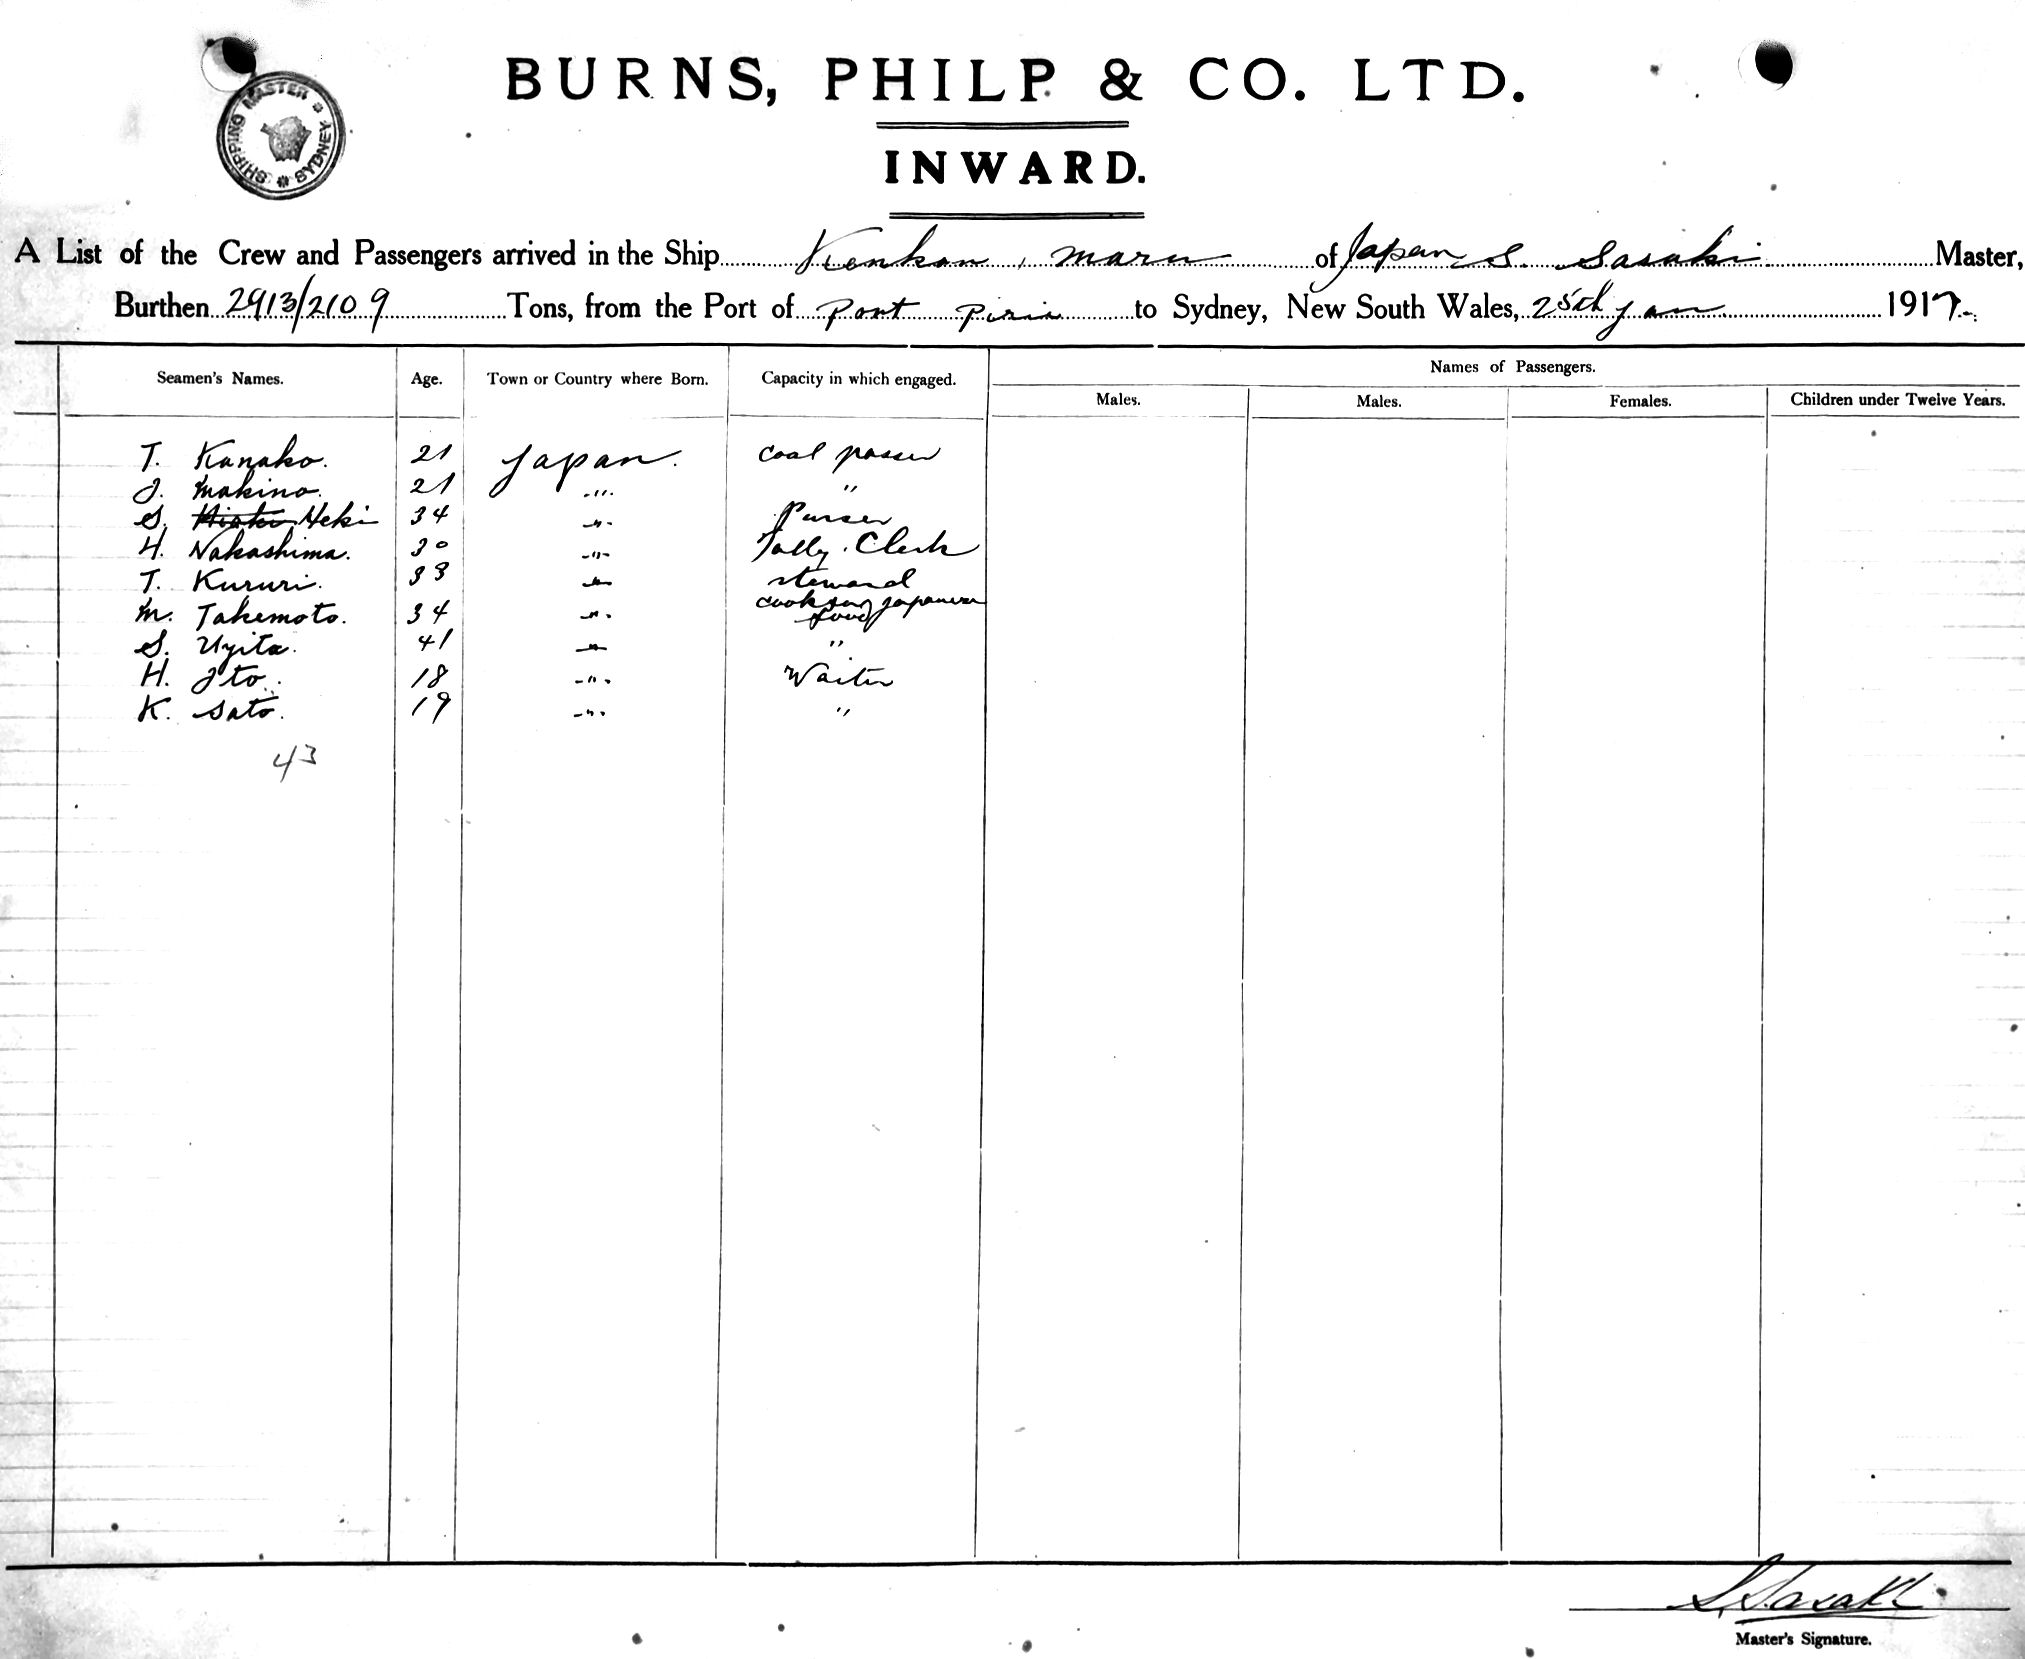 SHIPPING MASTER SYDNEY
BURNS, PHILP & CO. LTD.
INWARD.
A List of the Crew and Passengers arrived in the Ship Kenkon Maru of Japan S. Sasaki Master,
Burthen 2913/2109 Tons, from the Port of Port Pirie to Sydney, New South Wales, 25th Jan 1917.
Seamen's Names. Age. Town or Country where Born. Capacity in which engaged. Names of Passengers.
Males. Males. Females. Children under Twelve Years.
T. Kanako. 21 Japan. coal passer
J. Makino. 21 " "
S. Heki 34 " Purser
H. Nakashima. 30 " Tally Clerk
T. Kururi. 33 " steward
M. Takemoto. 34 " cook Japanese food
S. Ujita. 41 " "
H. Ito. 18 " Waiter
K. Sato. 19 " "
43
S. Sasaki
Master's Signature.